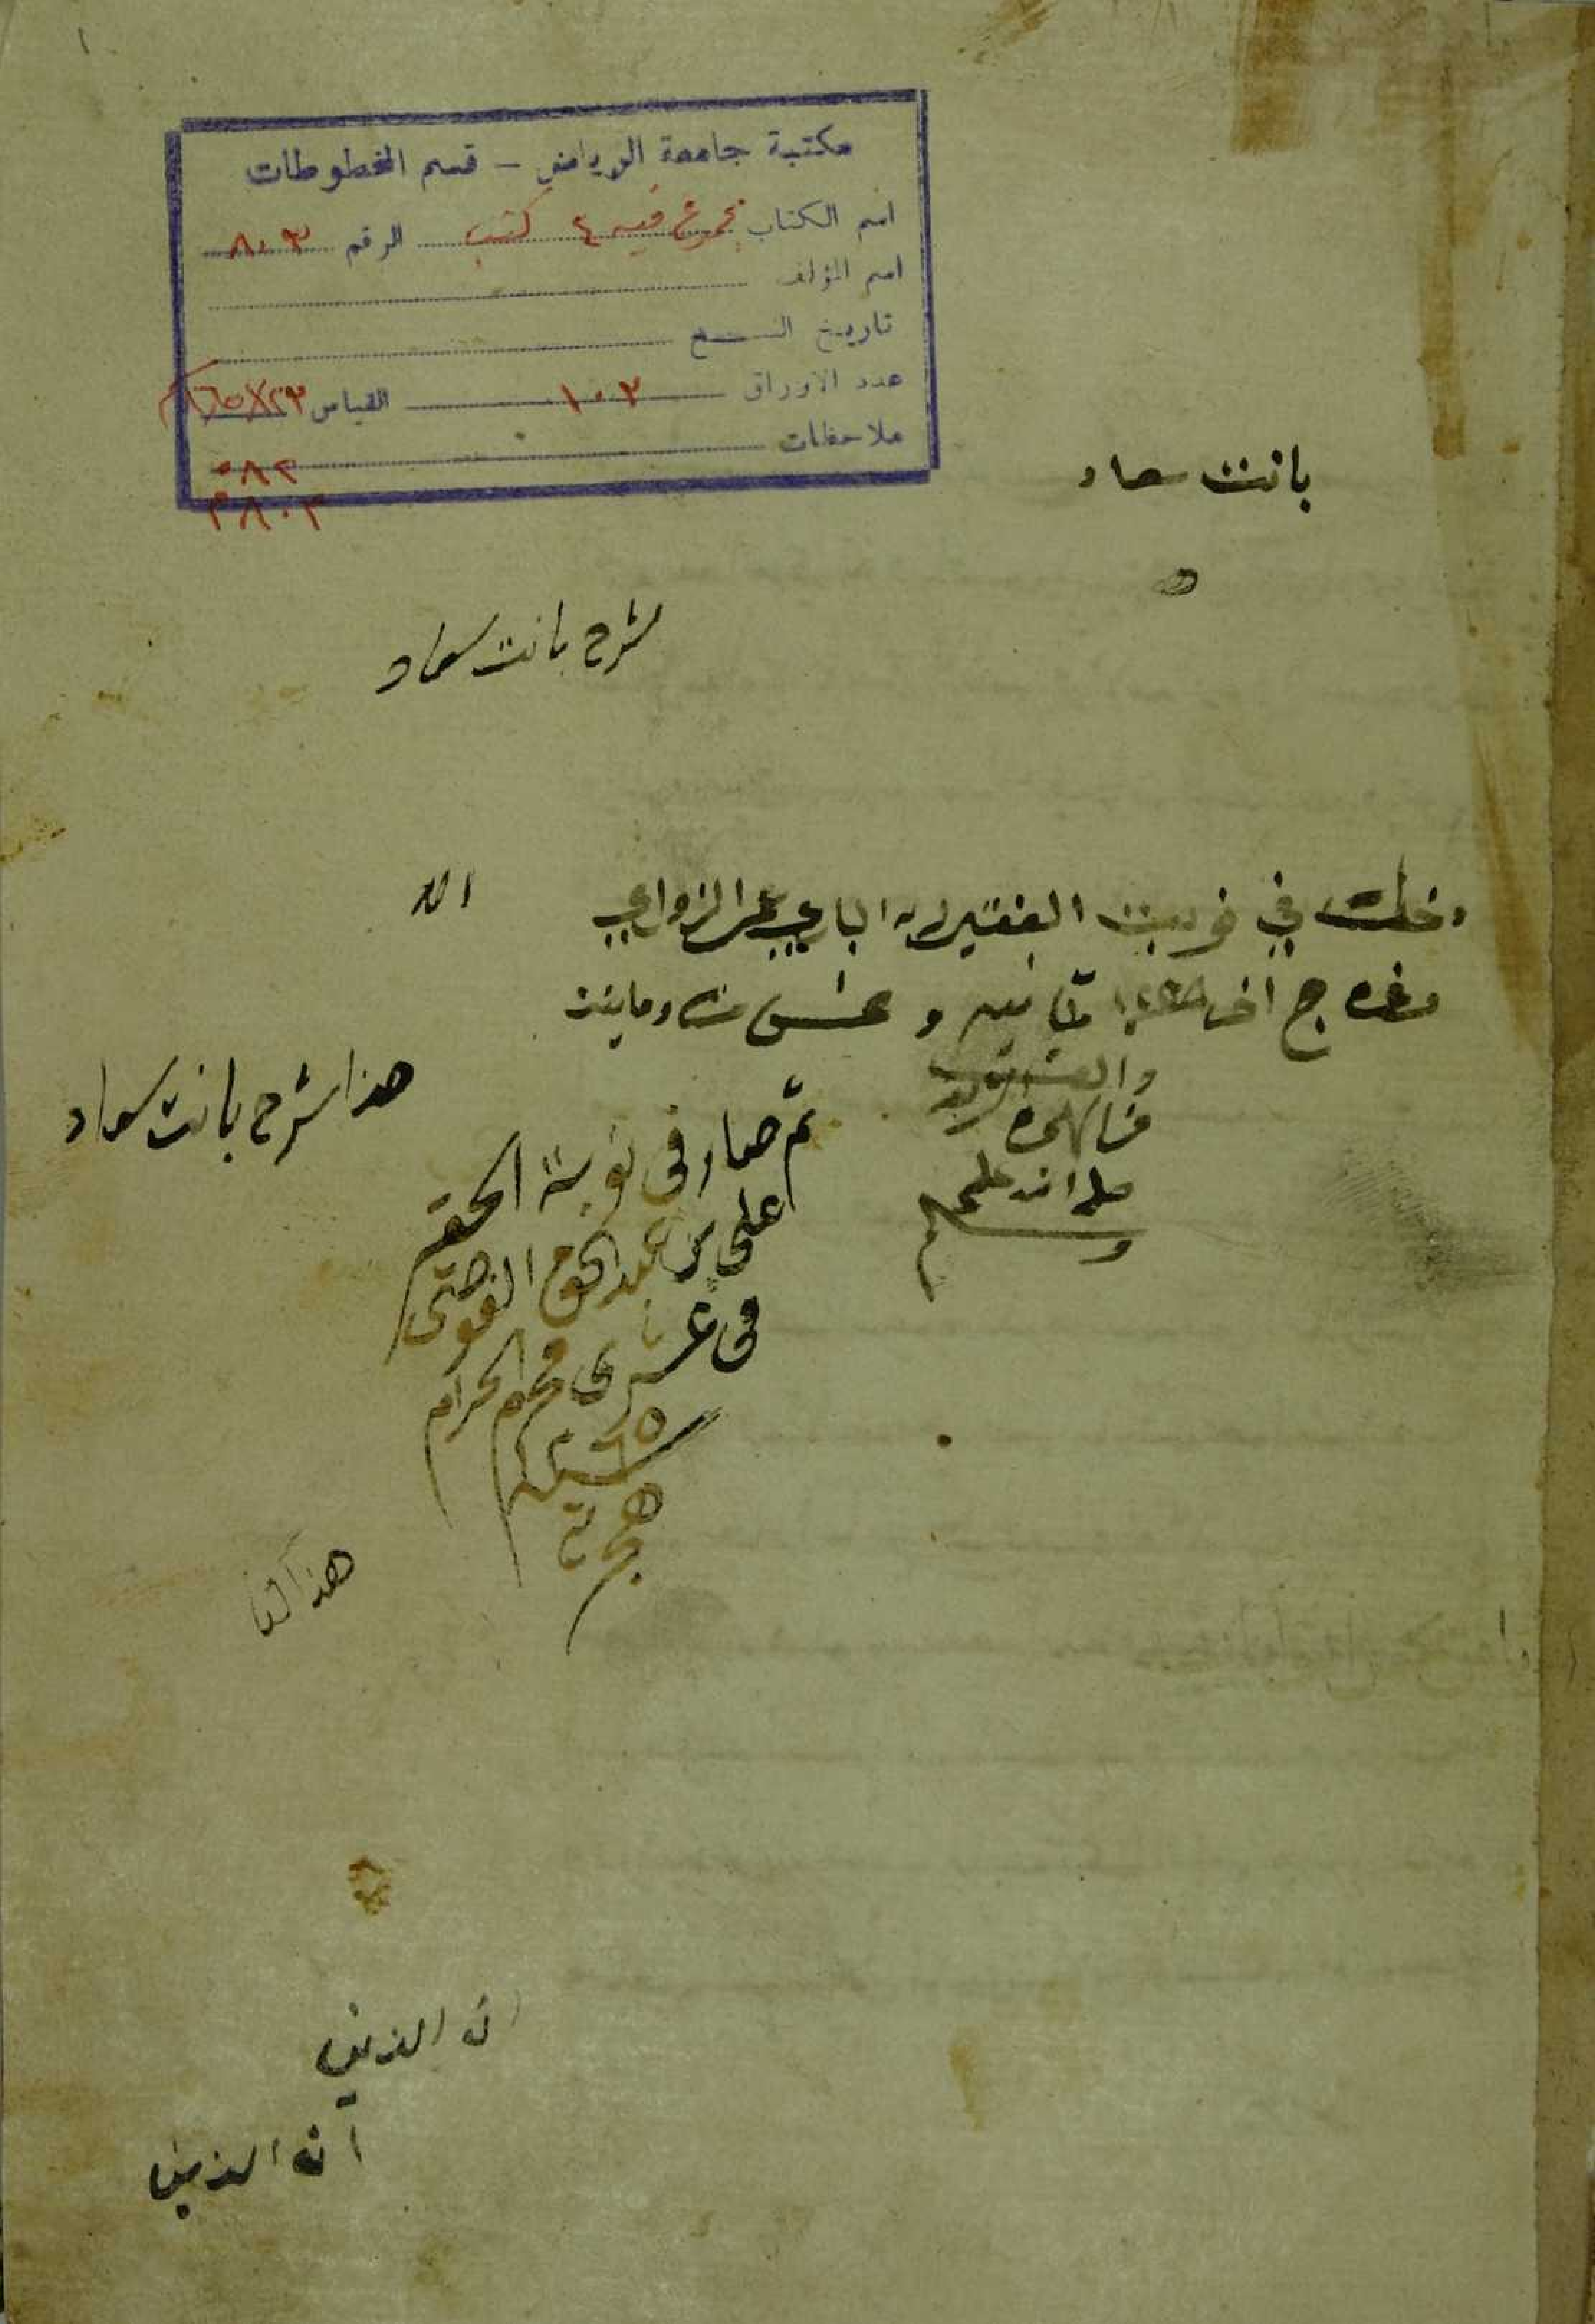 ١
مكتبة جامعة الرياض - قسم المخطوطات
اسم الكتاب مجموع فيه ٤ كتب الرقم ٨٠٣
اسم المؤلف
تاريخ النسخ
عدد الاوراق ١٠٢ القياس ٢٣×١٦٥
ملاحظات
٥٨٢
٣٨٠٢
بانت سعاد
شرح بانت سعاد
دخلت في نوبت الفقير اله الباري عمر الزواوي
الله
وعشرين مئة ومايتين
والف
صلى الله عليه
وسلم
هذا شرح بانت سعاد
ثم صار في نوبة الحقير
علي بن عبد الحق القوصي
في عشري محرم الحرام
سنة ١٢٦٥
هجرية
هذا الكتا
ان الذين
ان الذين